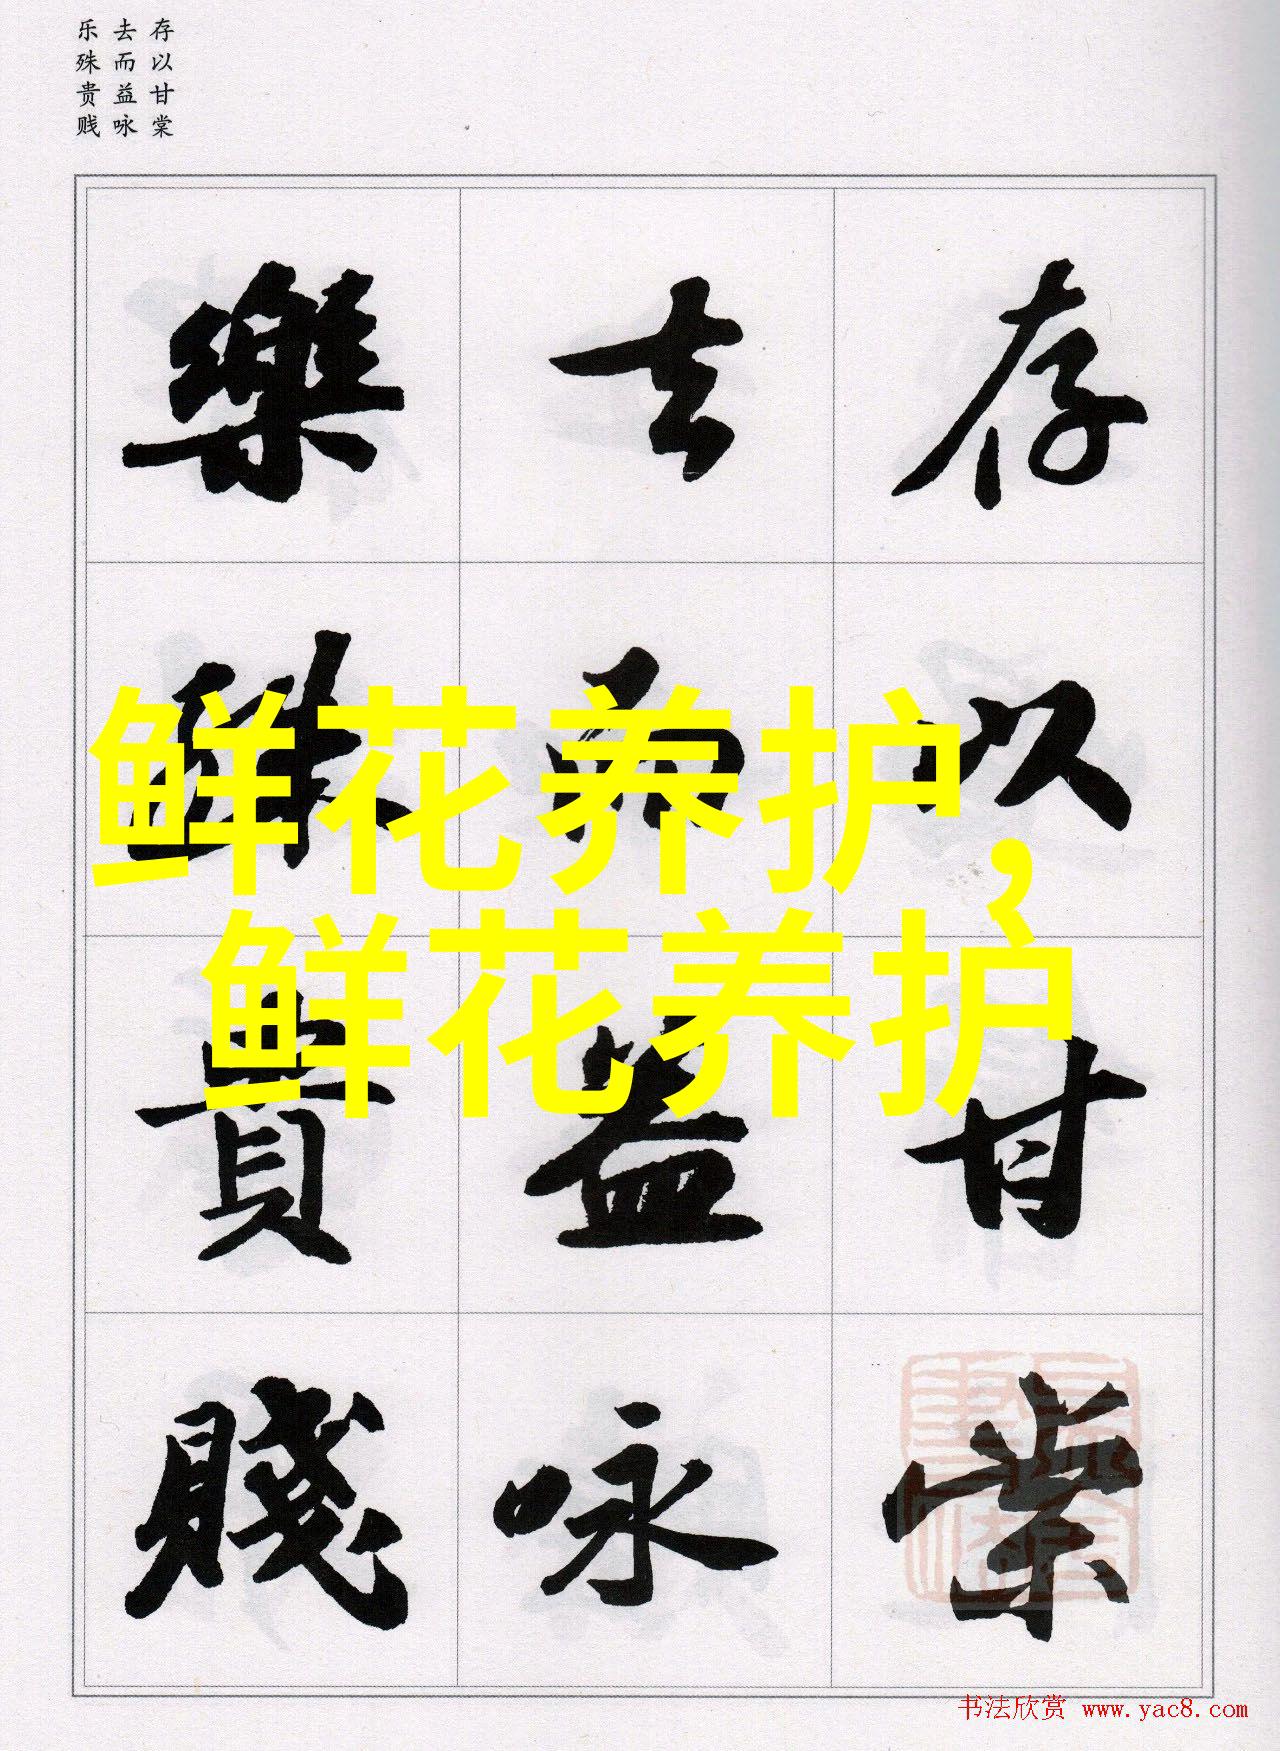 存以甘棠
去而益咏
乐殊贵贱
存以甘棠
去而益咏
樂殊貴賤
鲜花养护，
鲜花养护
书法欣赏 www.yac8.com